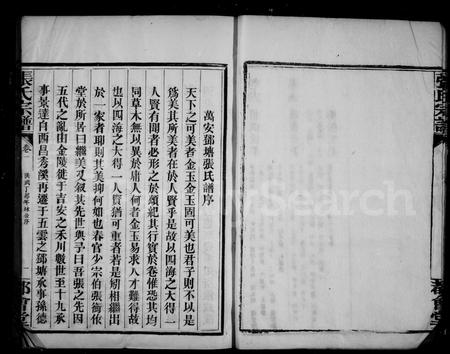 萬安邵塘張氏譜序
天下之可美者金玉金玉固可美也君子則不以是
爲美其所美者在於人賢乎是故以四海之大得一
人賢有聞者必形之於頌紀其行實於卷惟恐其均
同草木無以異於庸人何者金玉易求人才難得故
也以四海之大得一人賢猶可重者若是矧相繼出
於一家者耶則其美抑何如也春官少宗伯張衡依
堂於所居曰繼美又叙其先世與予曰吾張之先因
五代之亂由金陵徙于吉安之禾川數世至十九承
事景達自西昌秀溪再遷于五雲之邵塘承事孫德
張氏宗譜
卷一
張氏宗譜